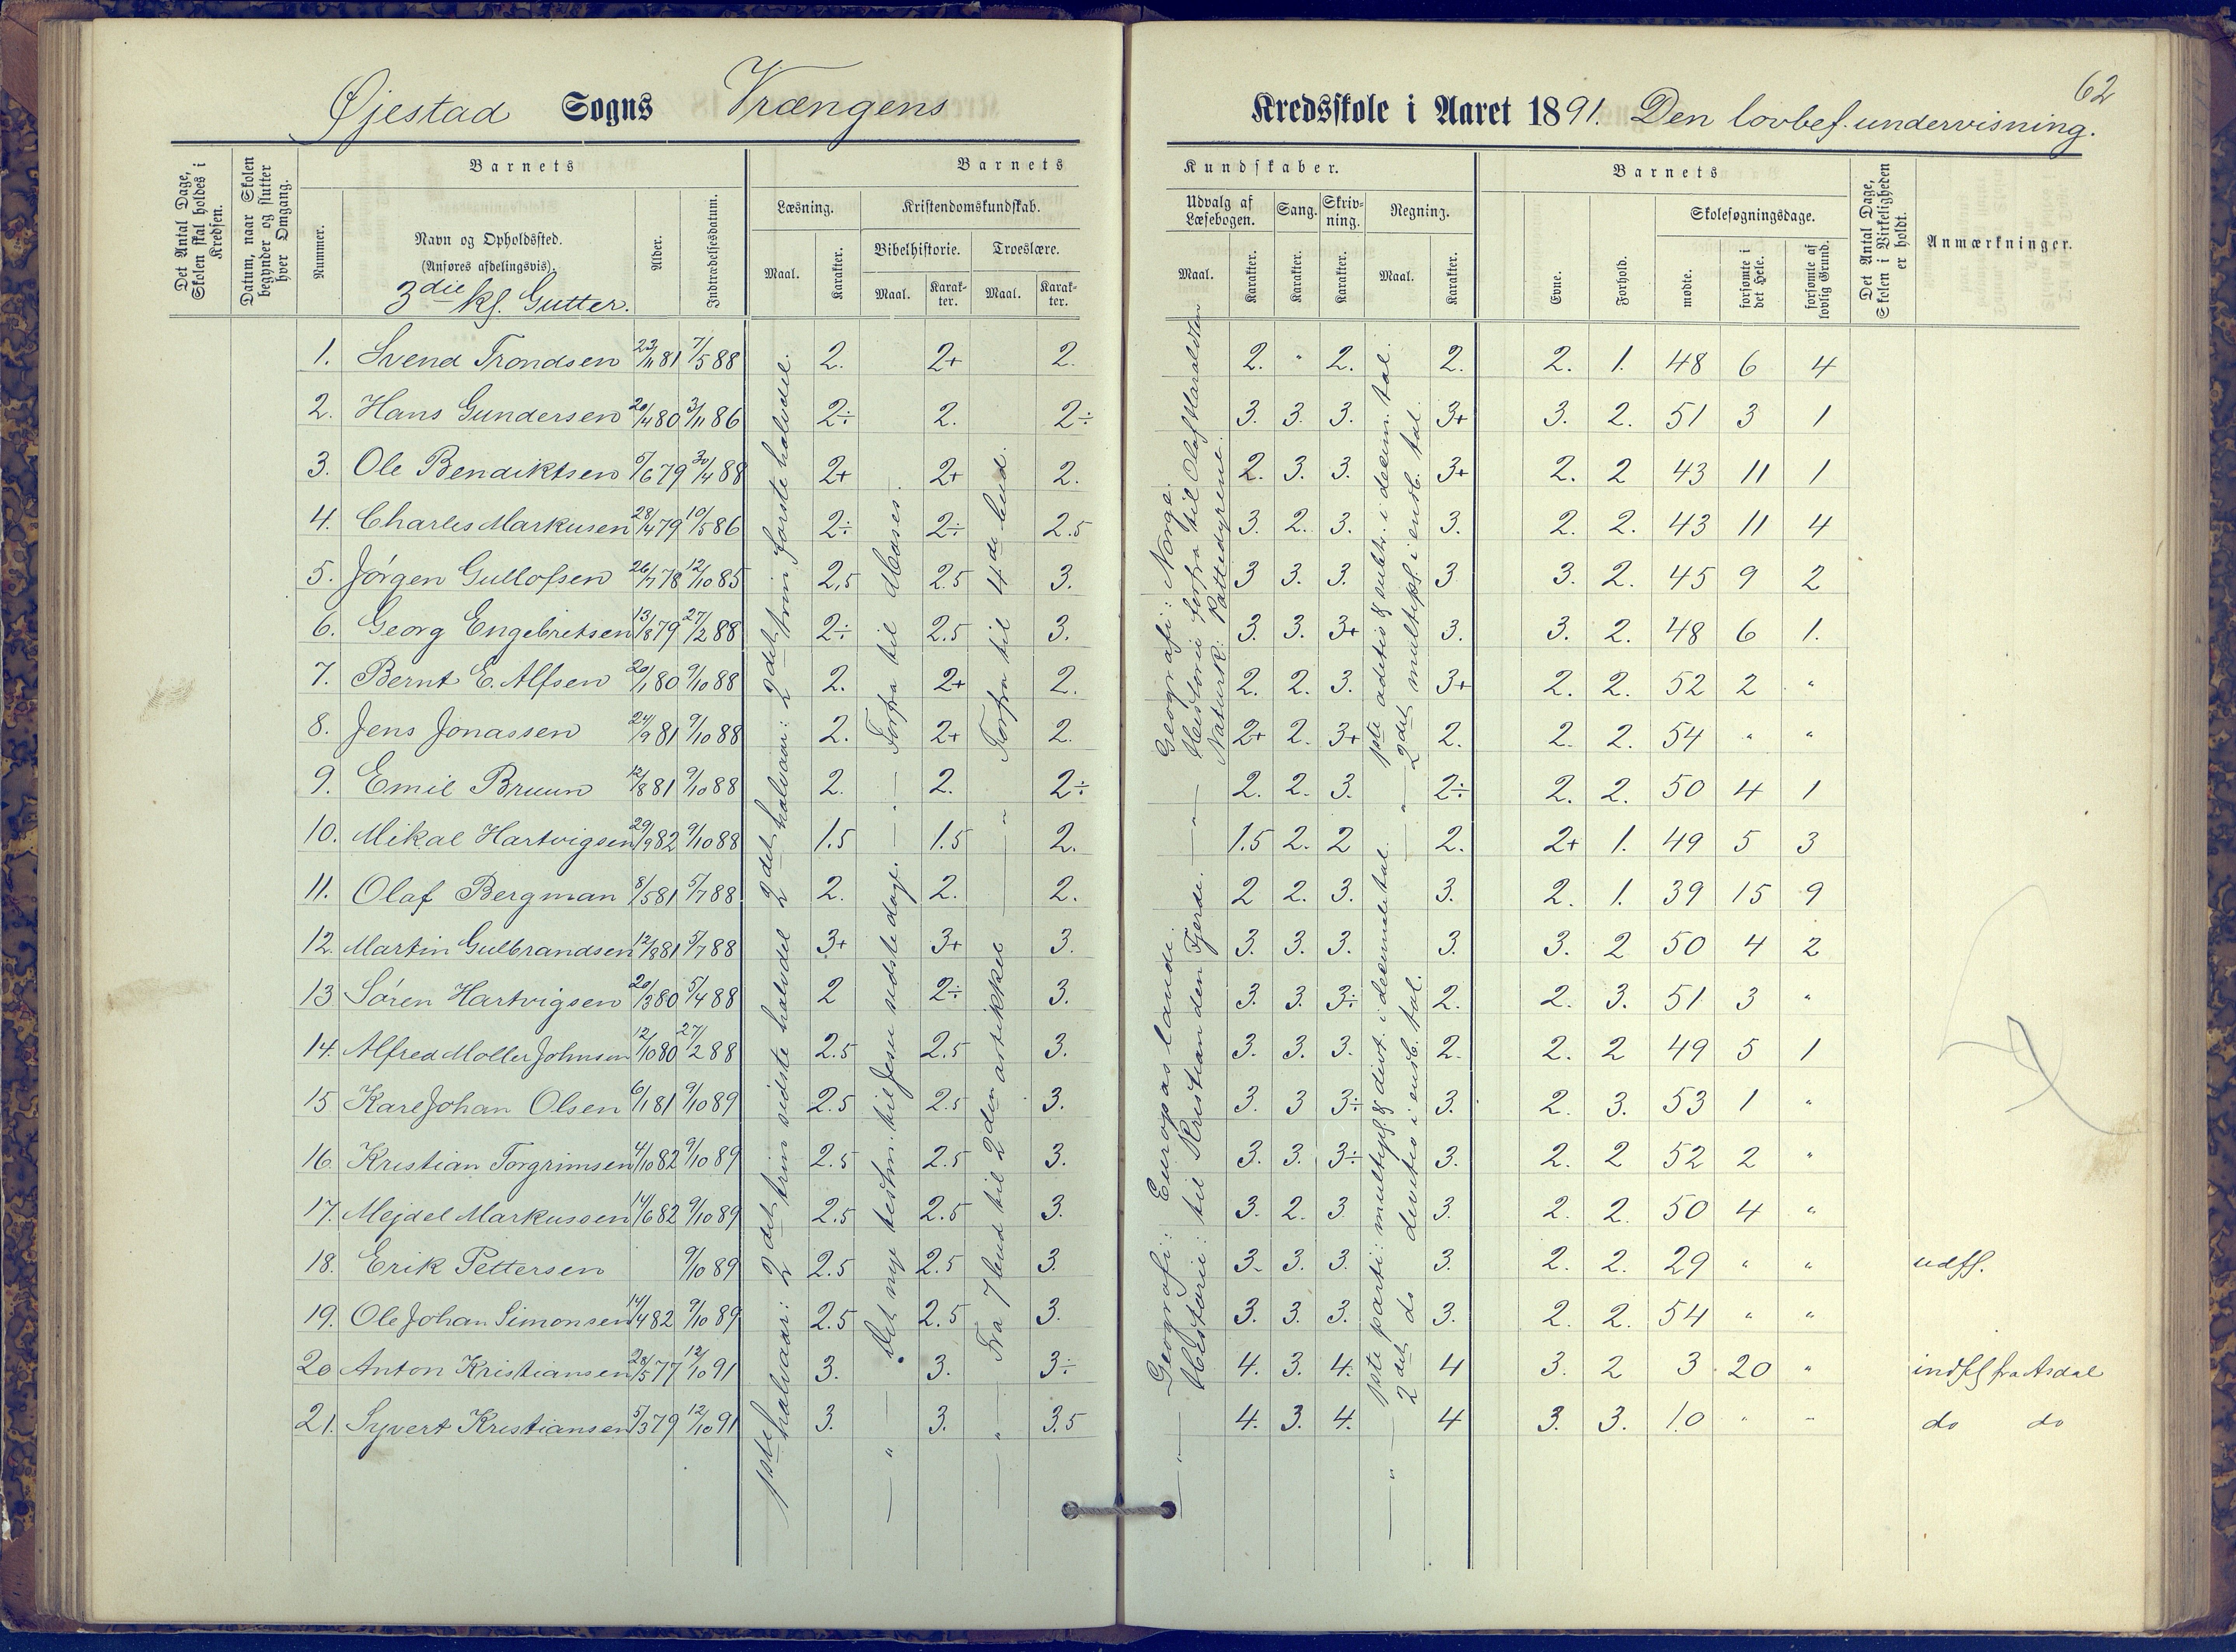 62
Øjestad Sogns Vrængens Kredsskole i Aaret 1891. Den lovbef. undervisning.
Det Antal Dage, Skolen skal holdes i Kredsen.
Datum, naar Skolen begynder og slutter hver Omgang.
Barnets
Nummer.
Navn og Opholdssted.
(Anføres afdelingsvis).
3die kl. Gutter.
Alder.
Indtrædelsesdatum.
Barnets Kundskaber.
Læsning.
Maal. Karakter.
Kristendomskundskab.
Bibelhistorie. Troeslære.
Maal. Karakter. Maal. Karakter.
Udvalg af Læsebogen. Sang. Skrivning. Regning.
Maal. Karakter. Karakter. Karakter. Maal. Karakter.
Barnets
Evne. Forhold.
Skolesøgningsdage.
mødte. forsømte i det Hele. forsømte af lovlig Grund.
Det Antal Dage, Skolen i Virkeligheden er holdt.
Anmærkninger.
1. Svend Trondsen 23/11 81 7/5 88 2. 2+ 2. 2. " 2. 2. 2. 1. 48 6 4
2. Hans Gundersen 20/4 80 3/11 86 2÷ 2. 2÷ 3. 3. 3. 3+ 3. 2. 51 3 1
3. Ole Bendiktsen 5/6 79 30/4 88 2+ 2+ 2. 2. 3. 3. 3+ 2. 2 43 11 1
4. Charles Markusen 28/4 79 10/5 86 2÷ 2÷ 2.5 3. 2. 3. 3. 2. 2. 43 11 4
5. Jörgen Gullofsen 26/7 78 12/10 85 2,5 2.5 3. 3 3. 3. 3 3. 2. 45 9 2
6. Georg Engebretsen 13/8 79 27/2 88 2÷ 2.5 3. 3. 3. 3+ 3. 3. 2. 48 6 1.
7. Bernt E. Alfsen 20/1 80 9/10 88 2. 2+ 2. 2. 2. 3. 3+ 2. 2. 52 2 "
8. Jens Jonassen 24/9 81 9/10 88 2. 2+ 2. 2+ 2. 3+ 2. 2. 2. 54 " "
9. Emil Bruun 12/8 81 9/10 88 2. 2. 2÷ 2. 2. 3. 2÷ 2. 2. 50 4 1
10. Mikal Hartvigsen 29/9 82 9/10 88 1.5 1.5 2. 1.5 2. 2 2. 2+ 1. 49 5 3
11. Olaf Bergman 8/5 81 5/7 88 2. 2. 2. 2 2. 3. 3. 2. 1. 39 15 9
12. Martin Gulbrandsen 12/8 81 5/7 88 3+ 3+ 3. 3. 3. 3. 3. 3. 2 50 4 2
13. Sören Hartvigsen 20/3 80 5/4 88 2 2÷ 3. 3. 3. 3÷ 2. 2. 3. 51 3 "
14. Alfred Moller Johnsen 12/10 80 27/2 88 2.5 2.5 3. 3. 3. 3. 2. 2. 2 49 5 1
15 Karl Johan Olsen 6/1 81 9/10 89 2.5 2.5 3. 3. 3 3÷ 3. 2. 3. 53 1 "
16. Kristian Torgrimsen 4/10 82 9/10 89 2.5 2.5 3. 3. 3. 3÷ 3. 2. 2 52 2 "
17. Mejdel Markussen 14/6 82 9/10 89 2.5 2.5 3. 3. 2. 3 3. 2. 2. 50 4 "
18. Erik Pettersen 9/10 89 2.5 2.5 3. 3. 3. 3. 3. 2. 2. 29 " " udfl.
19. Ole Johan Simonsen 14/4 82 9/10 89 2.5 2.5 3. 3. 3. 3. 3. 2. 2. 54 " "
20 Anton Kristiansen 28/5 77 12/10 91 3. 3. 3÷ 4. 3. 4. 4 3. 2 3 20 " indfl fra Asdal
21. Syvert Kristiansen 5/3 79 12/10 91 3. 3. 3.5 4. 3. 4. 4 3. 3. 10 " " do do
1ste halvaar: 2det trin sidste halvdel
2det halvaar: 2det trin første halvdel.
Det nye testm. til Jesu sidste dage.
— " — Forfra til Moses.
Fra 7 bud til 2den artikkel
— " — Forfra til 4de bud.
Geografi: Europas lande.
Historie: til Kristian den Fjerde.
— " — Geografi: Norge.
Historie forfra til Olaf Haraldsen
Naturk: Pattedyrene.
1ste parti: multipl. & divt. i decimaltal.
2det do devitio i ensb. tal.
— " — 1ste aditio & subtr. i decim. tal.
— " — 2det multipl. i ensb. tal.